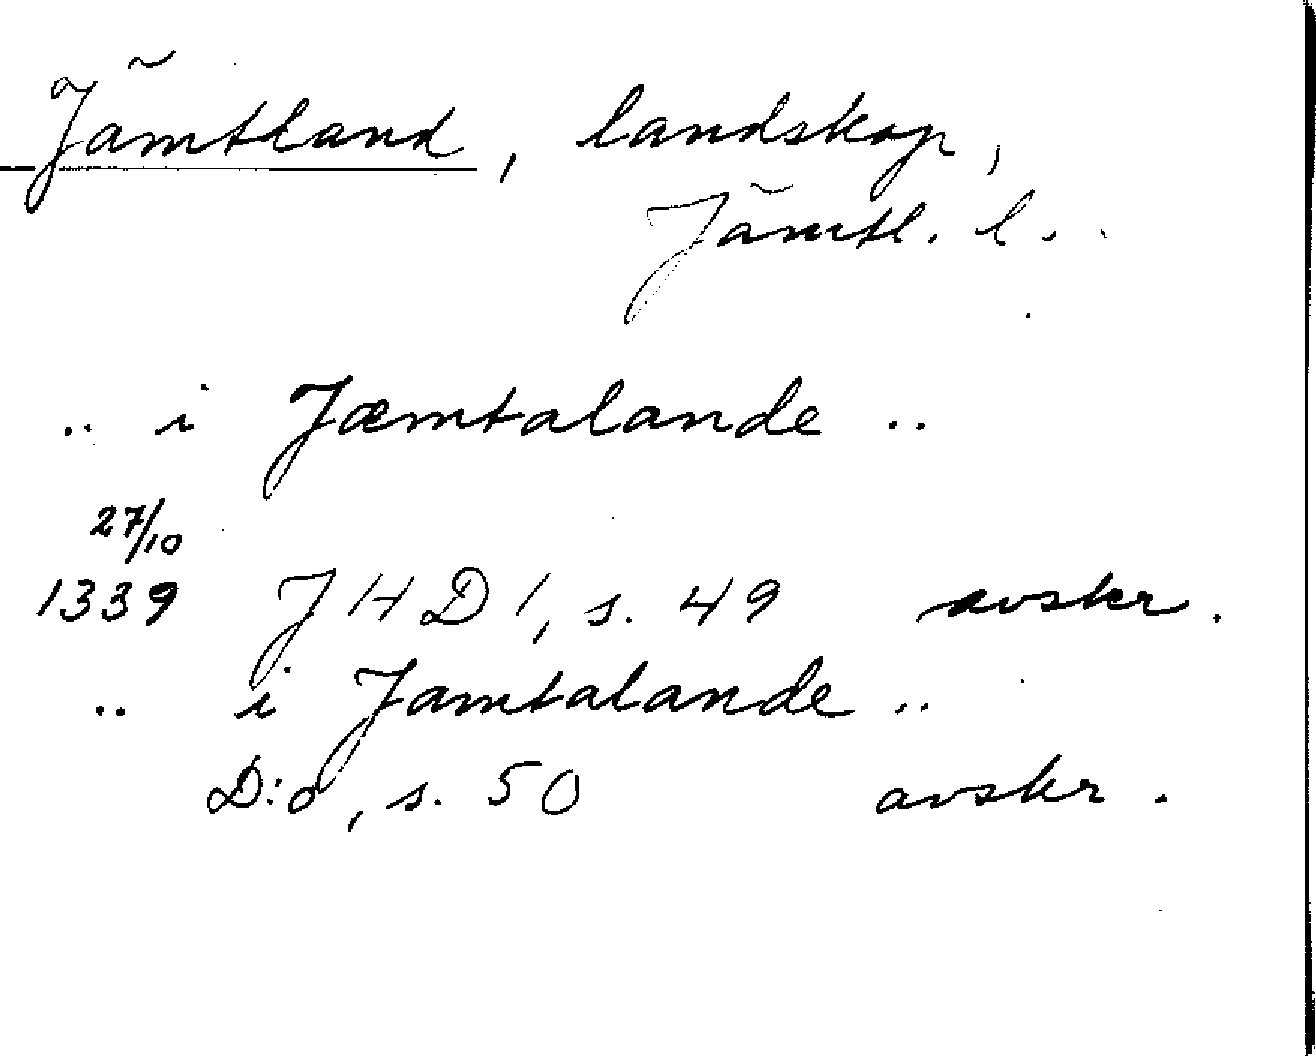 Jämtland, landskap,
Jämtl. l.
.. i Jæmtalande ..
27/10
1339 JHD 1, s. 49 avskr.
.. i Jamtalande ..
D:o, s. 50 avskr.